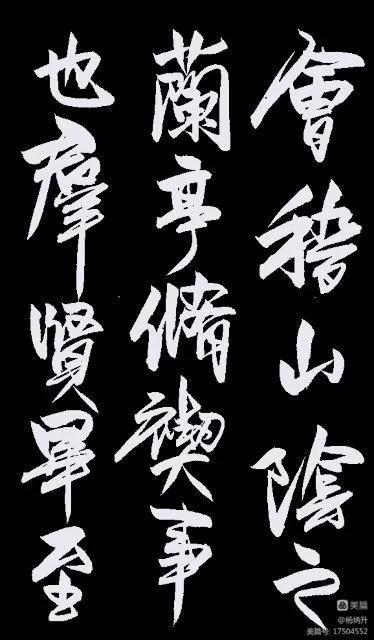 會稽山陰之
蘭亭脩禊事
也羣賢畢至
美篇
@杨炳升
美篇号: 17504552